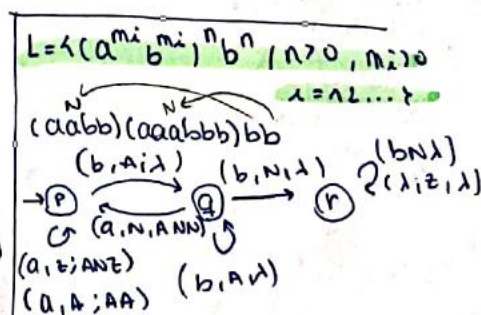 L = {(a^mi b^mi)^n b^n / n>0, mi>0
i = 1 2 ... }
N N
(aabb)(aaabbb)bb
(b, A; λ) (b, N, λ) (bNλ)
→ p q r (λ; z, λ)
(a, N, ANN)
(a, z; ANZ)
(a, A; AA) (b, A, λ)